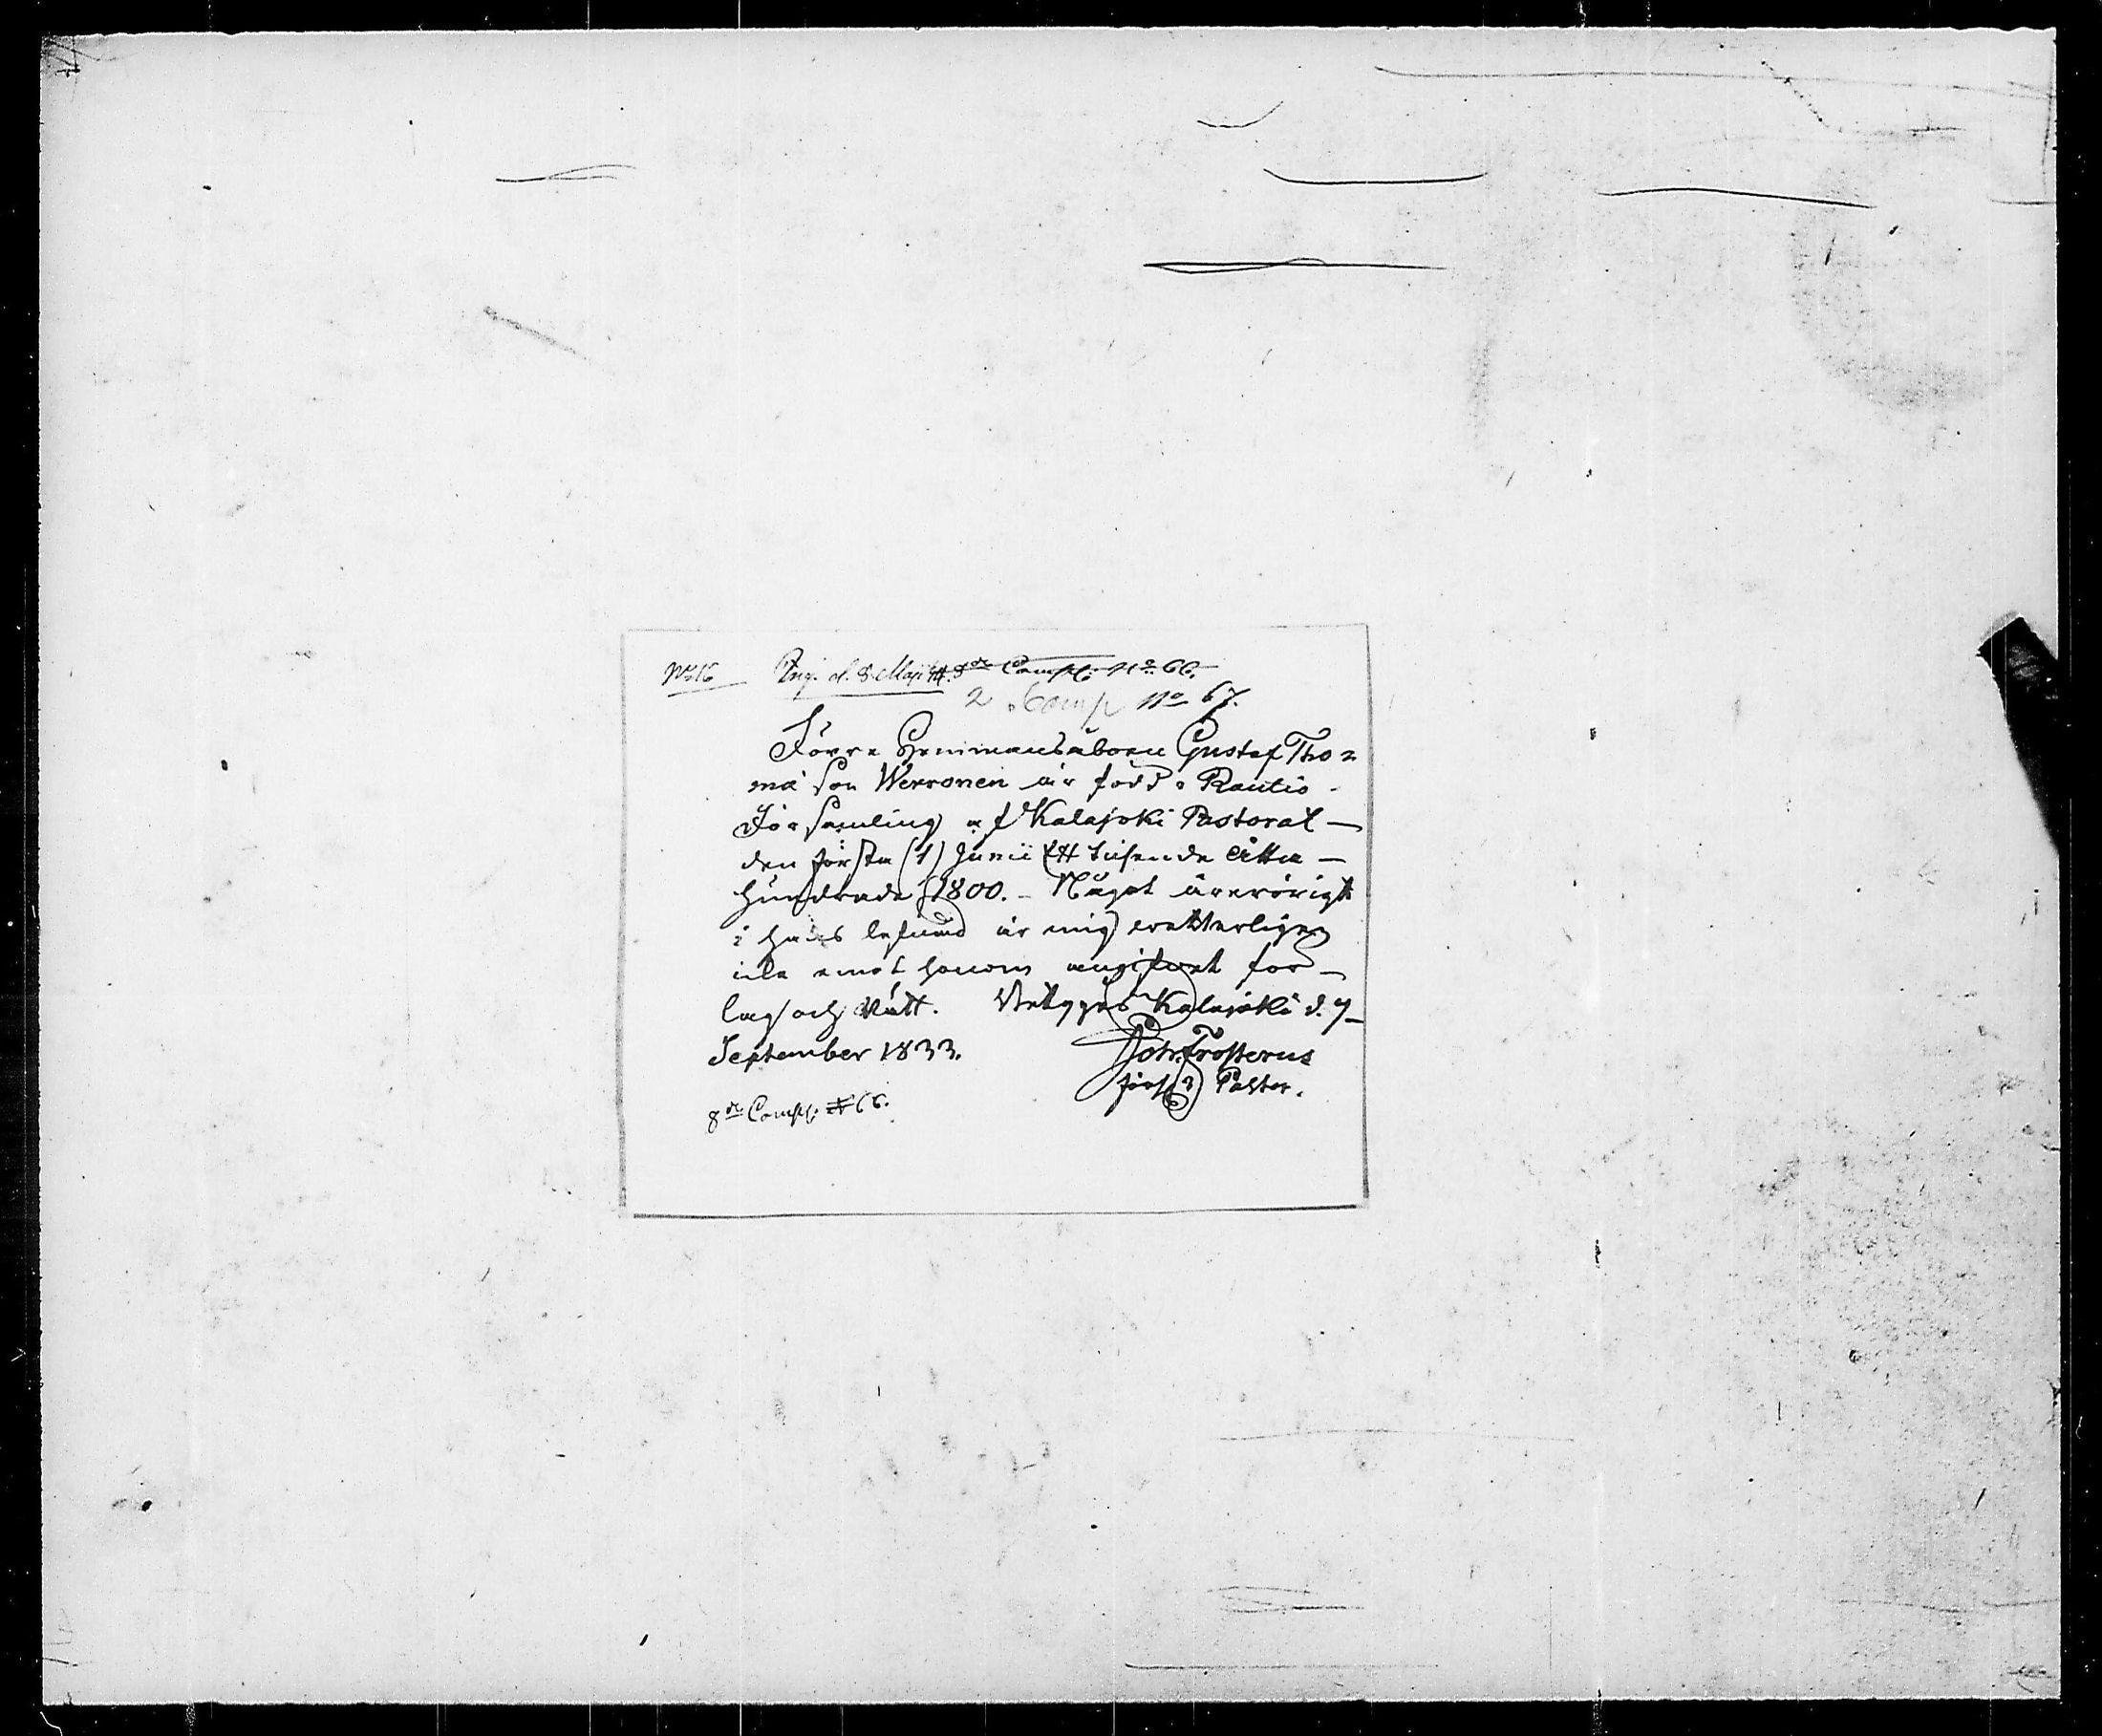 No 16 Reg. d. 8 Maji 34. 8de Comp: No 66.
2 Comp No 67.
Förre Hemmansåboen Gustaf Tho=
mæ Son Werronen är född i Rautio
Församling af Kalajoki Pastorat —
den första (1) Junii Ett tusende åtta —
hundrade (1800. — Något ärerörigt
i hans lefnad är mig vetterligen
icke emot honom angifvet för
lag och Rätt. Betygas Kalajoki d. 7
September 1833.
Joh. Frosterus
Past.
8de Comp: # 66.